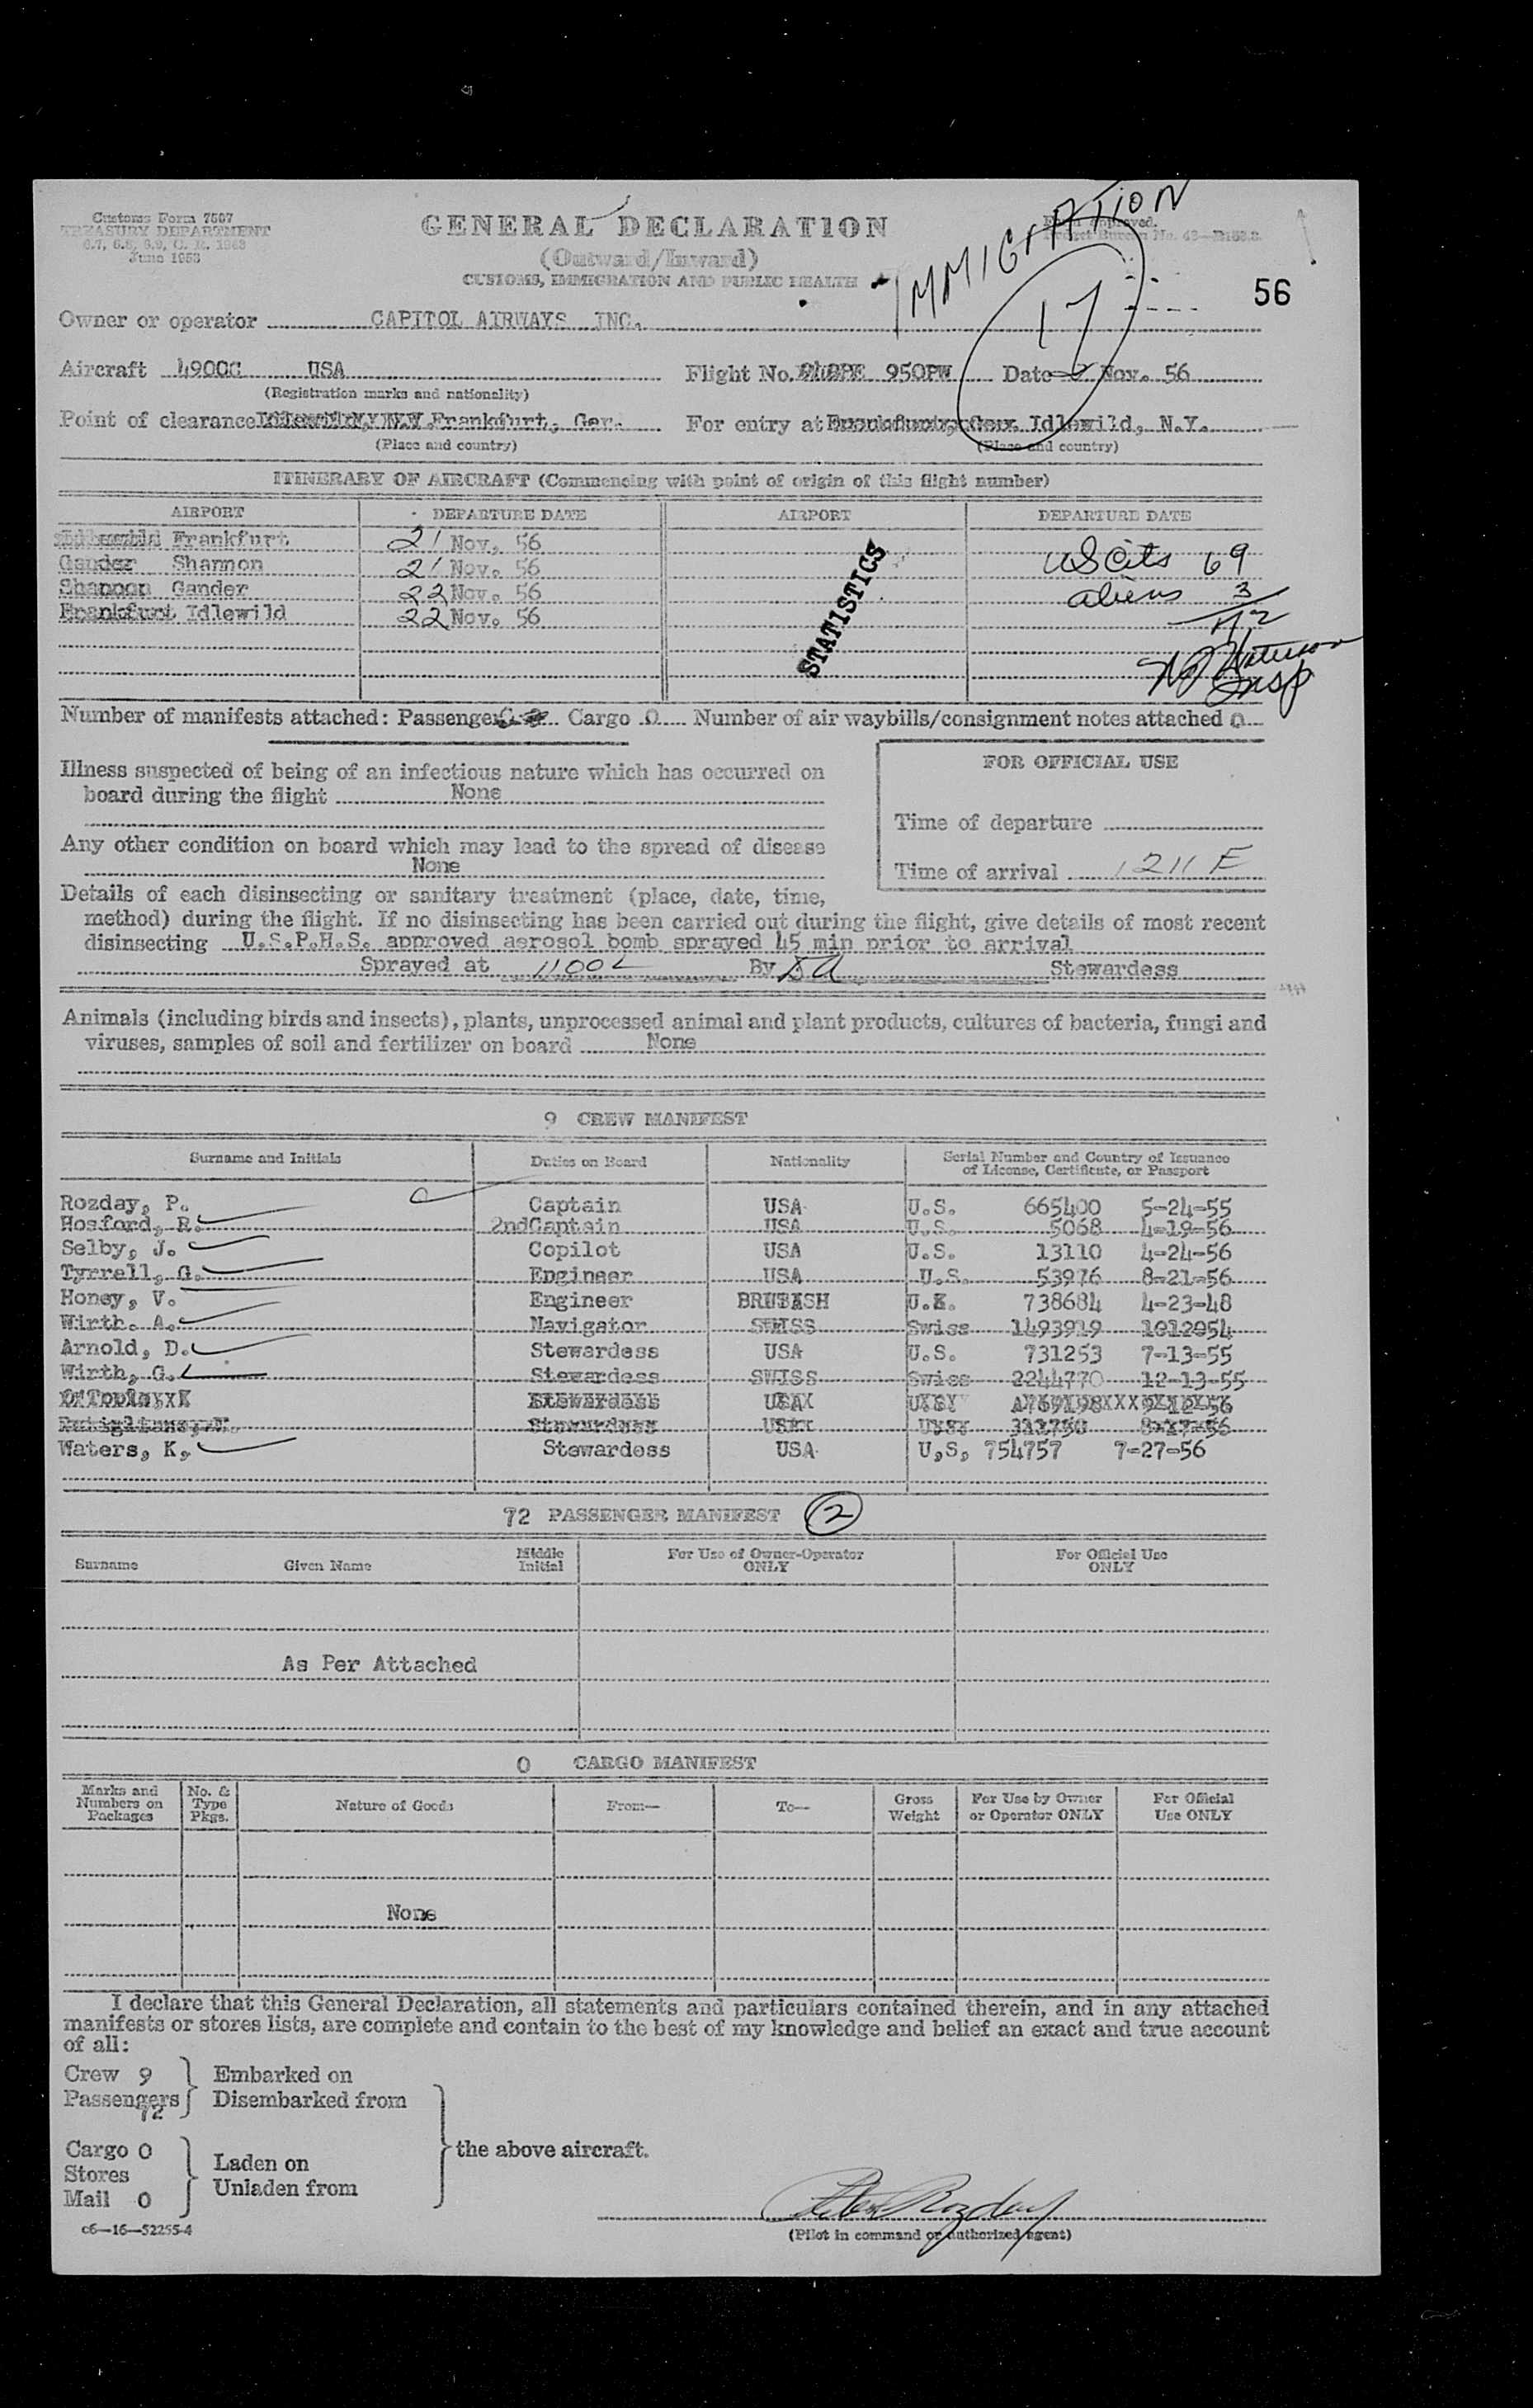 Customs Form 7507
TREASURY DEPARTMENT
6.7, 6.8, 6.9, C. R. 1943
June 1953
GENERAL DECLARATION
(Outward/Inward)
CUSTOMS, IMMIGRATION AND PUBLIC HEALTH
IMMIGRATION
Form approved.
Budget Bureau No.
17
56
Owner or operator CAPITOL AIRWAYS INC.
Aircraft 4900C USA Flight No. 950PW Date Nov. 56
(Registration marks and nationality)
Point of clearance Frankfurt, Ger. For entry at Idlewild, N.Y.
(Place and country) (Place and country)
ITINERARY OF AIRCRAFT (Commencing with point of origin of this flight number)
AIRPORT DEPARTURE DATE AIRPORT DEPARTURE DATE
Idlewild Frankfurt 21 Nov. 56
Gander Shannon 21 Nov. 56 US Cits 69
Shannon Gander 22 Nov. 56 aliens 3
Frankfurt Idlewild 22 Nov. 56 72
STATISTICS
Insp
Number of manifests attached: Passenger Cargo 0 Number of air waybills/consignment notes attached 0
Illness suspected of being of an infectious nature which has occurred on
board during the flight None
FOR OFFICIAL USE
Time of departure
Any other condition on board which may lead to the spread of disease
None
Time of arrival 1211 E
Details of each disinsecting or sanitary treatment (place, date, time,
method) during the flight. If no disinsecting has been carried out during the flight, give details of most recent
disinsecting U.S.P.H.S. approved aerosol bomb sprayed 45 min prior to arrival
Sprayed at 1100 L By DA Stewardess
Animals (including birds and insects), plants, unprocessed animal and plant products, cultures of bacteria, fungi and
viruses, samples of soil and fertilizer on board None
9 CREW MANIFEST
Surname and Initials Duties on Board Nationality Serial Number and Country of Issuance
of License, Certificate, or Passport
Rozday, P. Captain USA U.S. 665400 5-24-55
Hosford, R. 2ndCaptain USA U.S. 5068 4-19-56
Selby, J. Copilot USA U.S. 13110 4-24-56
Tyrrell, G. Engineer USA U.S. 53976 8-21-56
Honey, V. Engineer BRITISH U.K. 738684 4-23-48
Wirth. A. Navigator SWISS Swiss 1493919 1012054
Arnold, D. Stewardess USA U.S. 731253 7-13-55
Wirth, G. Stewardess SWISS Swiss 2244770 12-13-55
Stewardess
Stewardess
Waters, K, Stewardess USA U,S, 754757 7-27-56
72 PASSENGER MANIFEST 2
Surname Given Name Middle
Initial For Use of Owner-Operator
ONLY For Official Use
ONLY
As Per Attached
0 CARGO MANIFEST
Marks and
Numbers on
Packages No. &
Type
Pkgs. Nature of Goods From— To— Gross
Weight For Use by Owner
or Operator ONLY For Official
Use ONLY
None
I declare that this General Declaration, all statements and particulars contained therein, and in any attached
manifests or stores lists, are complete and contain to the best of my knowledge and belief an exact and true account
of all:
Crew 9 Embarked on
Passengers 72 Disembarked from
the above aircraft.
Cargo 0 Laden on
Stores
Mail 0 Unladen from
Peter Rozday
c6—16—52255-4 (Pilot in command or authorized agent)